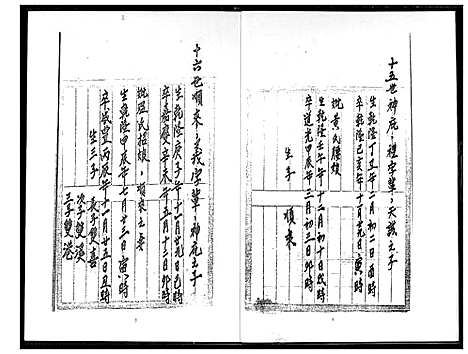 十五世神庇，禮字輩，天談之子
生乾隆丁丑年二月初二日酉時
卒乾隆己亥年十一月廿九日寅時
妣黃氏腰娘
生乾隆壬午年十二月初十日戌時
卒道光甲辰年二月初一日卯時
生子 順來
十六世順來，義字輩，神庇之子
生乾隆庚子年十一月廿九日巳時
卒嘉慶辛
年十二月十三日卯時
妣溫氏招娘，順來之妻
生乾隆甲辰年七月廿三日寅時
卒咸豐丙辰年十一月廿五日丑時
生三子 長子雙喜
次子雙溪
三子雙港